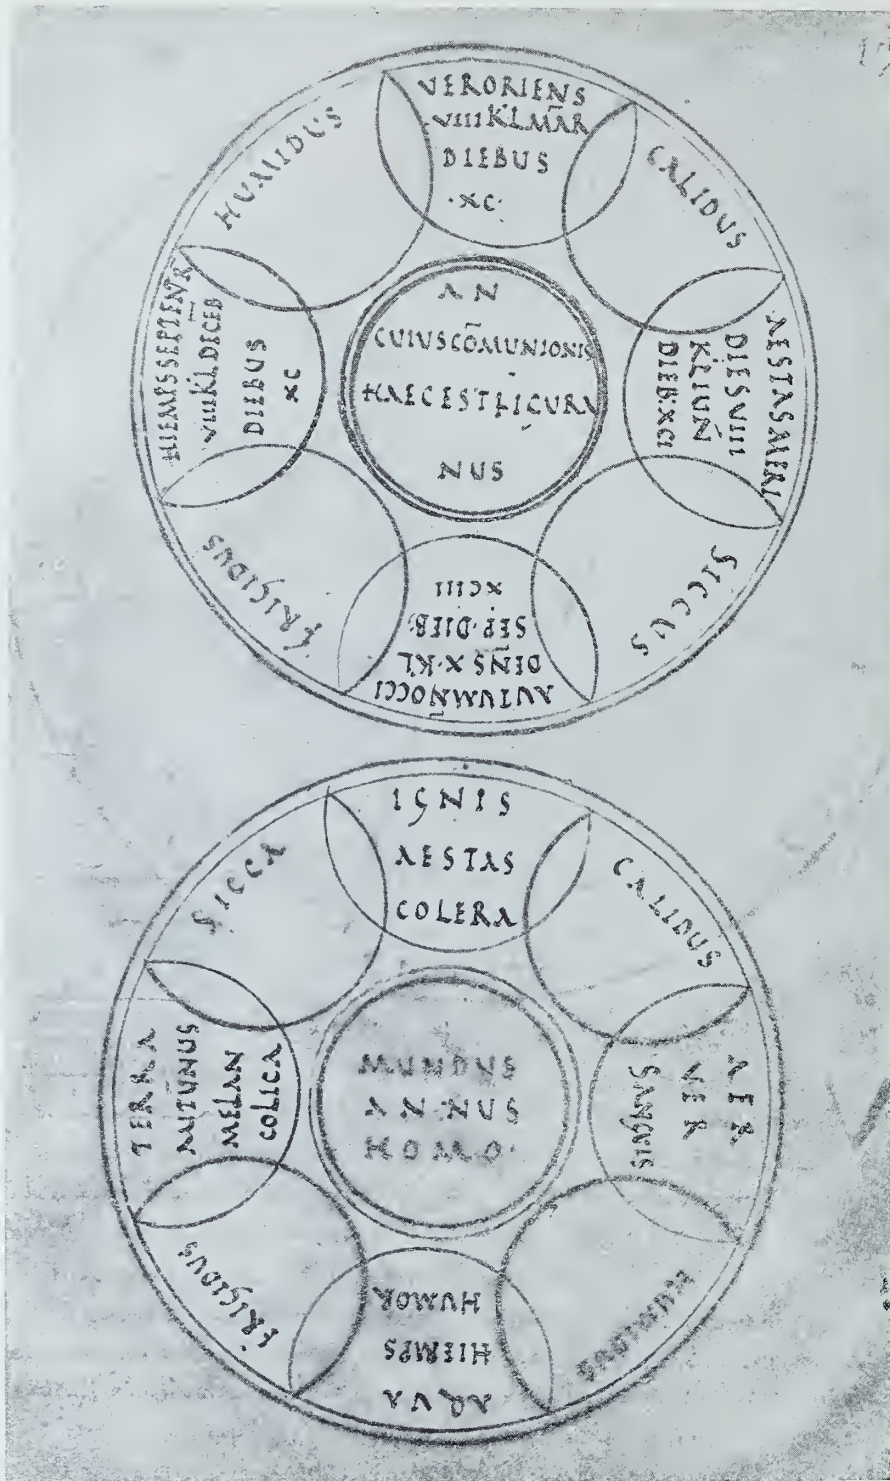 VERORIENS
VIII KL MAR
DIEBUS
·XC·
CALIDUS
AESTASMERI
DIESVIII
KLIUN
DIEBXCI
SICCUS
AUTUMNOCCI
DENS X·KL
SEP·DIEB·
XCIII
FRIGIDUS
HIEMPSSEPTENTR
VIII KL DECEB
DIEBUS
XC
HUMIDUS
AN
CUIUSCOMUNIONIS
HAECESTFIGURA
NUS
IGNIS
AESTAS
COLERA
CALIDUS
AER
VER
SANGUIS
HUMIDUS
AQVA
HIEMPS
HUMOR
FRIGIDUS
TERRA
AUTUNUS
MELAN
COLICA
SICCA
MUNDUS
ANNUS
HOMO·